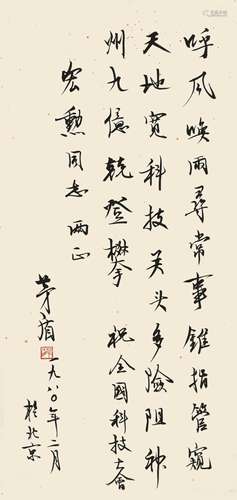 呼风唤雨寻常事锥指管窥
天地宽科技关头多险阻神
州九亿竞登攀 祝全国科技大会
宏勳同志两正
茅盾
一九八〇年二月
于北京